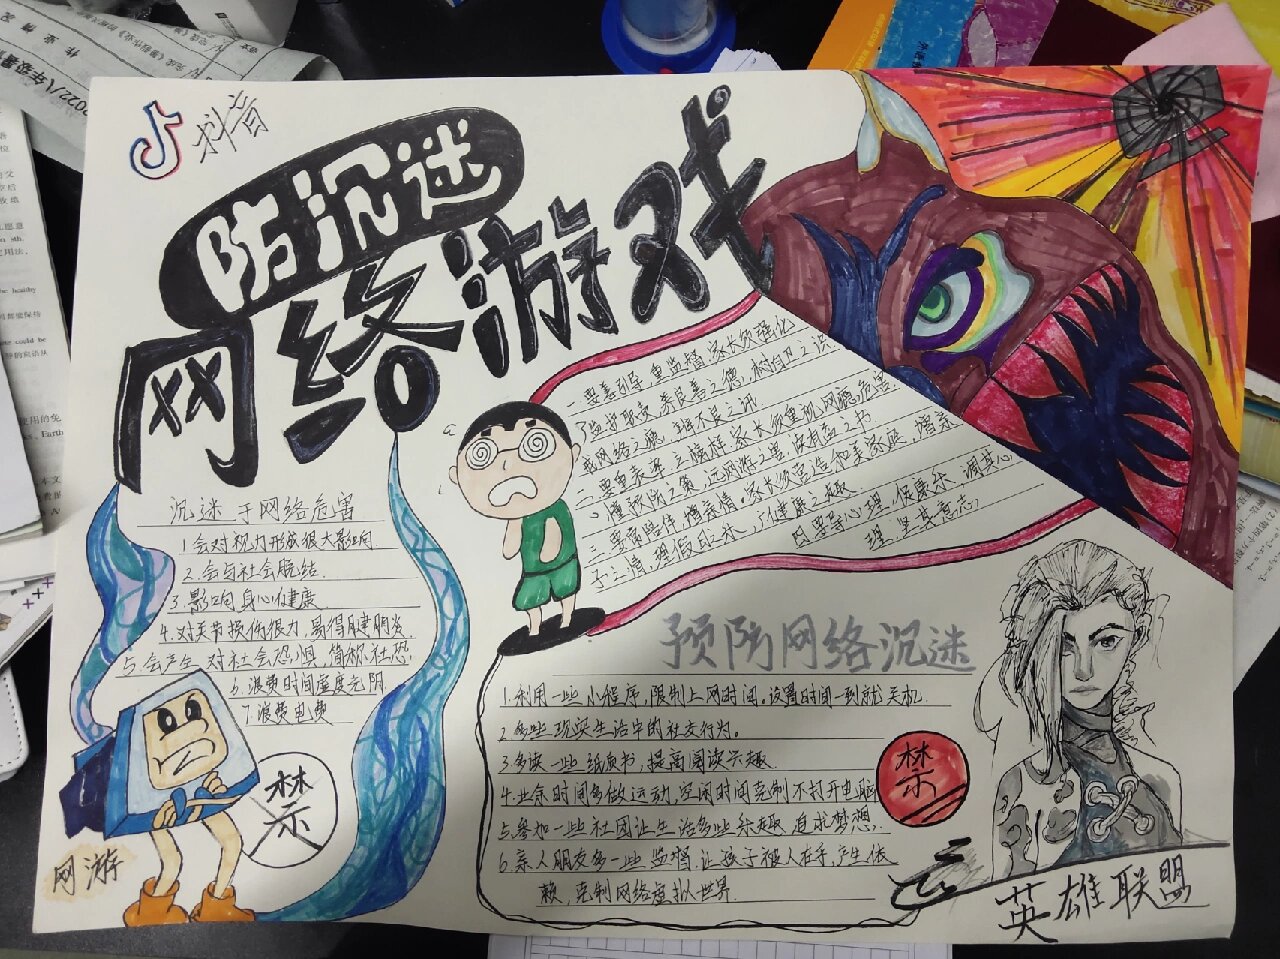 抖音
防沉迷
网络游戏
沉迷于网络危害
1.会对视力形成很大影响
2.会与社会脱结.
3.影响身心健康
4.对关节损伤很力,易得腱朋炎.
5.会产生对社会恐惧,简称社恐.
6.浪费时间虚度光阴.
7.浪费电费
禁
网游
一.要善引导,重监督,家长须强化
了监督职责,养良善之德,树自卫之识
我网络之瘾,拒不良之讯
二.要重表率,立榜样,家长须重视网瘾危害,
三.要常陪伴,增亲情,家长须营造和美家庭,增亲
子之情,理假日之补,广健康之趣
四.要导心理,促康状,调其心
理,坚其意志,
预防网络沉迷
1.利用一些小程序,限制上网时间。设置时间一到就关机
2.多些现实生活中的社交行为。
3.多读一些纸质书,提高阅读兴趣
4.业余时间多做运动,空闲时间克制不打开电脑
5.参加一些社团让生活多些乐趣,追求梦想.
6.亲人朋友多一些监督,让孩子被人在乎,产生依
赖,克制网络虚拟世界
禁
英雄联盟